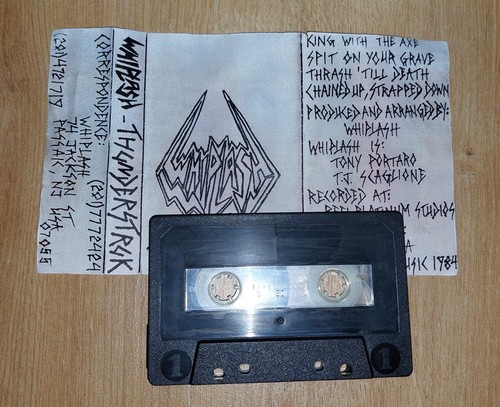 KING WITH THE AXE
SPIT ON YOUR GRAVE
THRASH 'TILL DEATH
CHAINED UP, STRAPPED DOWN
PRODUCED AND ARRANGED BY:
WHIPLASH
WHIPLASH IS:
TONY PORTARO
T.J. SCAGLIONE
RECORDED AT:
REEL PLATINUM STUDIOS
MUSIC 1984
WHIPLASH
WHIPLASH - THUNDERSTRUK
CORRESPONDENCE:
WHIPLASH
74 JACKSON ST
PASSAIC, NJ USA
07055
(201) 7772424
(201) 4721717
1
1